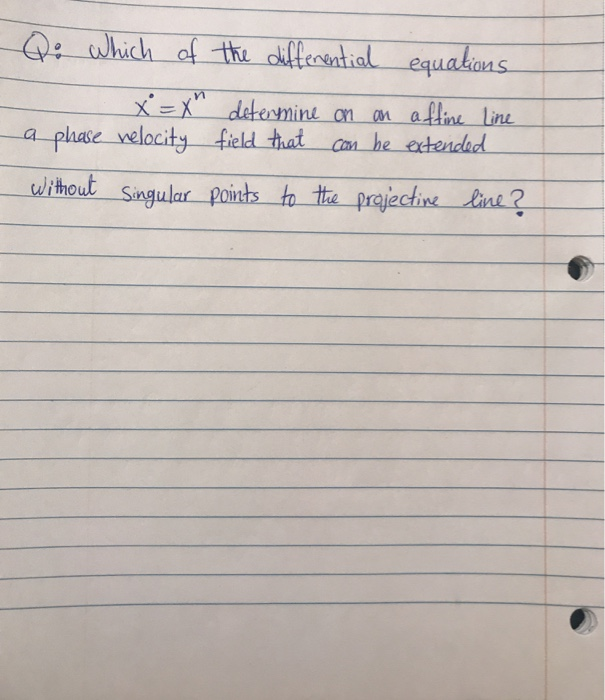 Q: Which of the differential equations
ẋ = xⁿ determine on an affine line
a phase velocity field that can be extended
without singular points to the projective line?